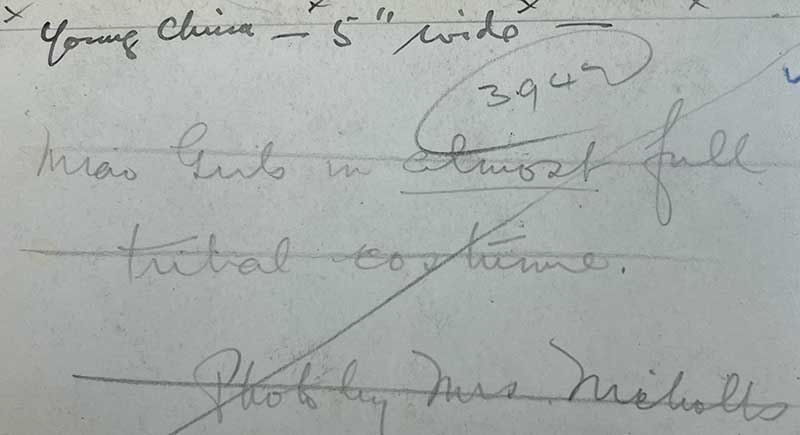 Young China — 5" wide —
3942
Miao Girls in almost full
tribal costume.
Photo by Mrs. Nicholls